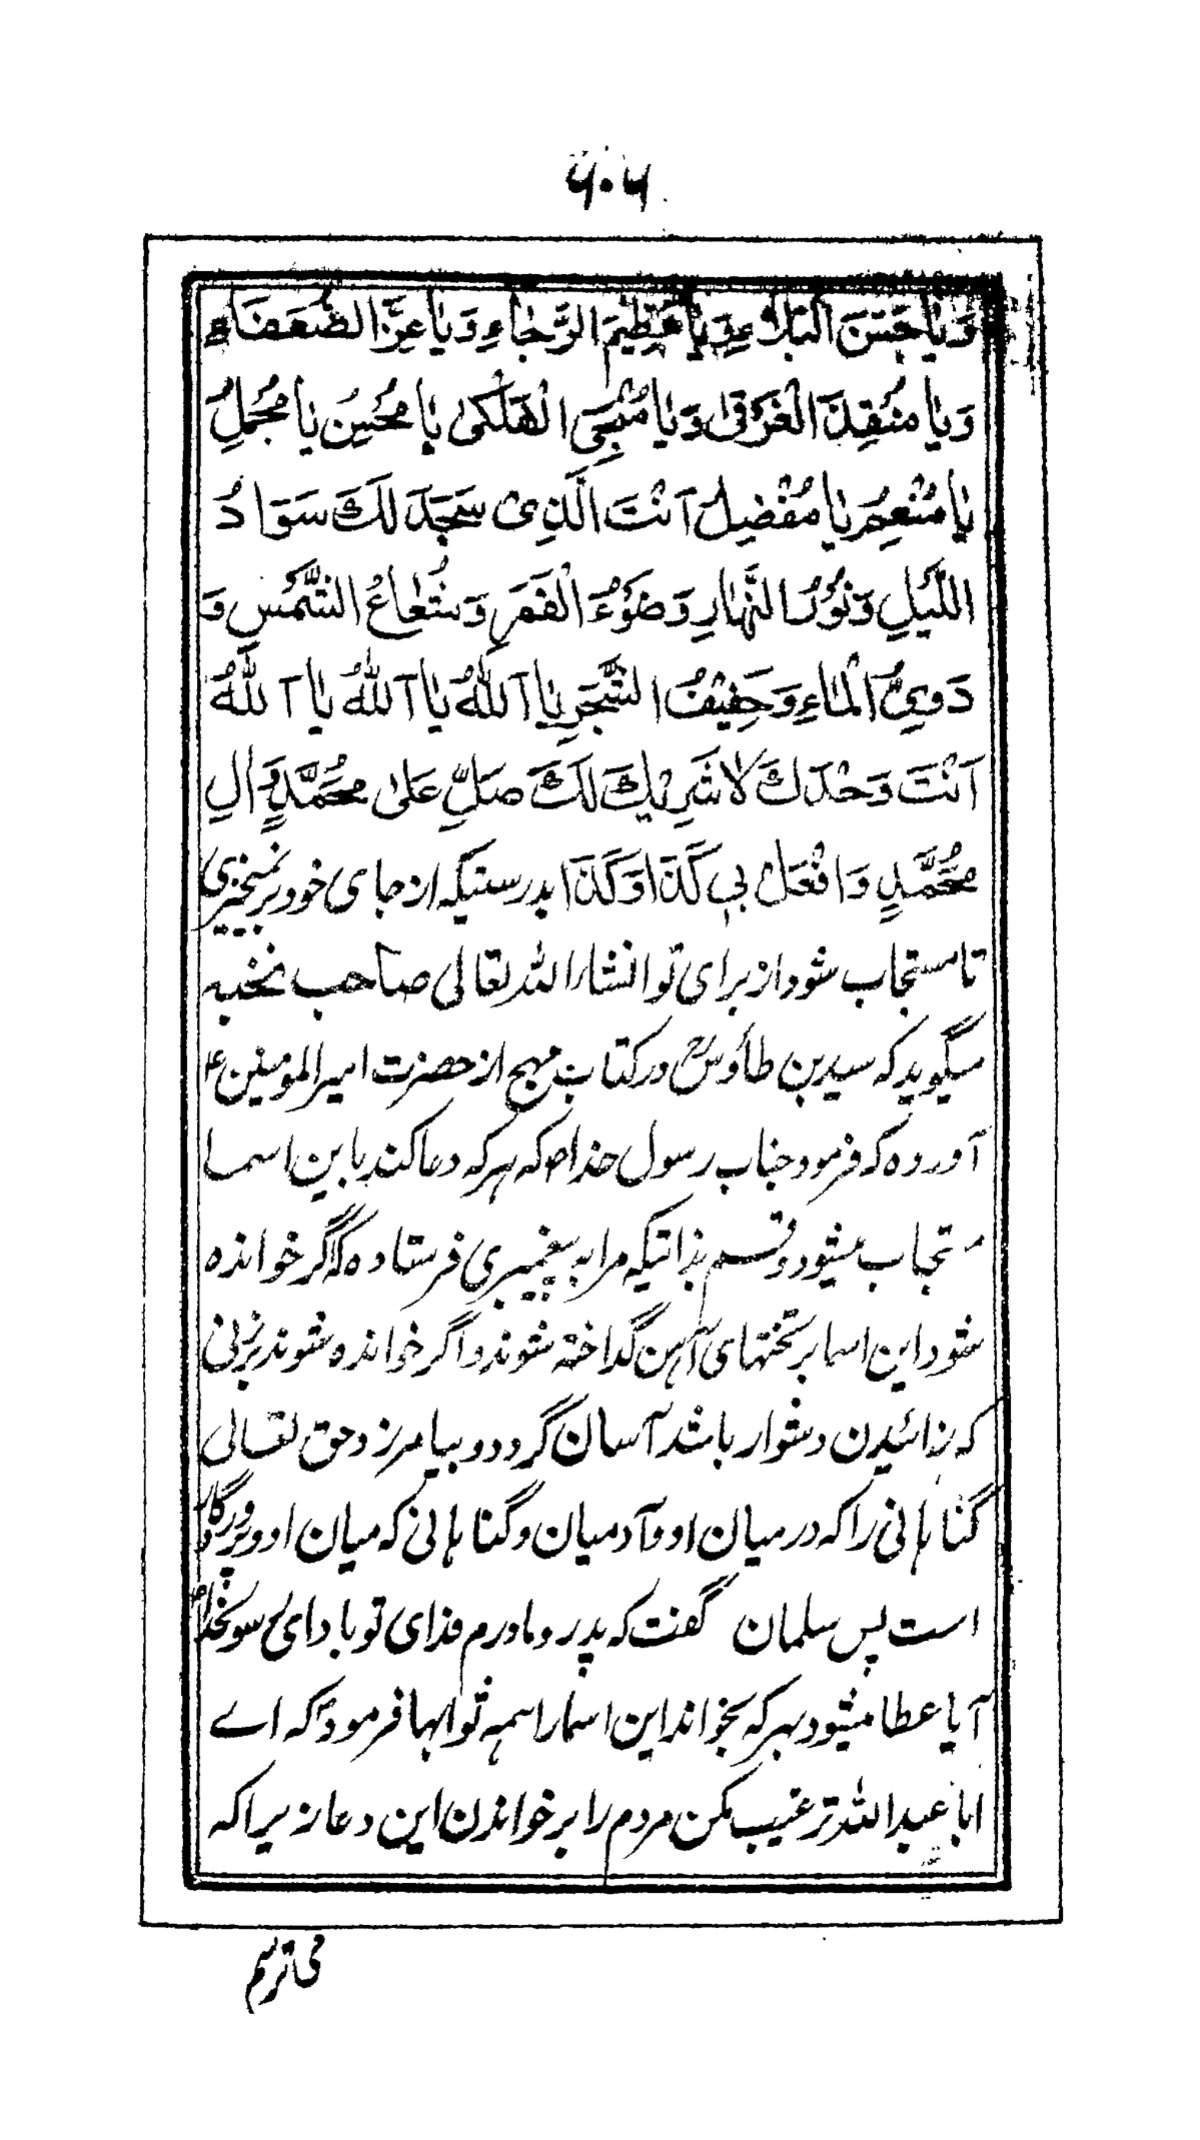 ۶۰۶
وَيَا حَسَنَ الْبَلَاءِ وَيَا عَظِيمَ الرَّجَاءِ وَيَا عِزَّ الضُّعَفَاءِ
وَيَا مُنْقِذَ الْغَرْقىٰ وَيَا مُنْجِىَ الْهَلْكىٰ يَا مُحْسِنُ يَا مُجْمِلُ
يَا مُنْعِمُ يَا مُفْضِلُ اَنْتَ الَّذِىْ سَجَدَ لَكَ سَوَادُ
اللَّيْلِ وَنُوْرُ النَّهَارِ وَضَوْءُ الْقَمَرِ وَشُعَاعُ الشَّمْسِ وَ
دَوِىُّ الْمَاءِ وَحَفِيْفُ الشَّجَرِ يَا اَللّٰهُ يَا اَللّٰهُ يَا اَللّٰهُ
اَنْتَ وَحْدَكَ لَا شَرِيْكَ لَكَ صَلِّ عَلىٰ مُحَمَّدٍ وَّالِ
مُحَمَّدٍ وَافْعَلْ بِى كَذَا وَكَذَا بدرستیکه از جای خود برنمیخیزی
تا مستجاب شود از برای تو انشاء الله تعالی صاحب نخبه
میگوید که سید بن طاؤسؒ در کتاب مهج از حضرت امیرالمومنینؑ
آورده که فرمود جناب رسول خداؐ که هر که دعا کند باین اسما
مستجاب میشود و قسم بذاتیکه مرا به پیغمبری فرستاده که اگر خوانده
شود این اسما بر تختهای آهن گداخته شوند و اگر خوانده شوند بر زنی
که زائیدن دشوار باشد آسان گردد و بیامرزد حق تعالی
گناهانی را که در میان او و آدمیان و گناهانی که میان او و پروردگار
است پس سلمان گفت که پدر و مادرم فدای تو باد ای رسولخدا
آیا عطا میشود بهر که بخواند این اسما را همه ثوابها فرمود که اے
ابا عبدالله ترغیب مکن مردم را بر خواندن این دعا زیرا که
می ترسم